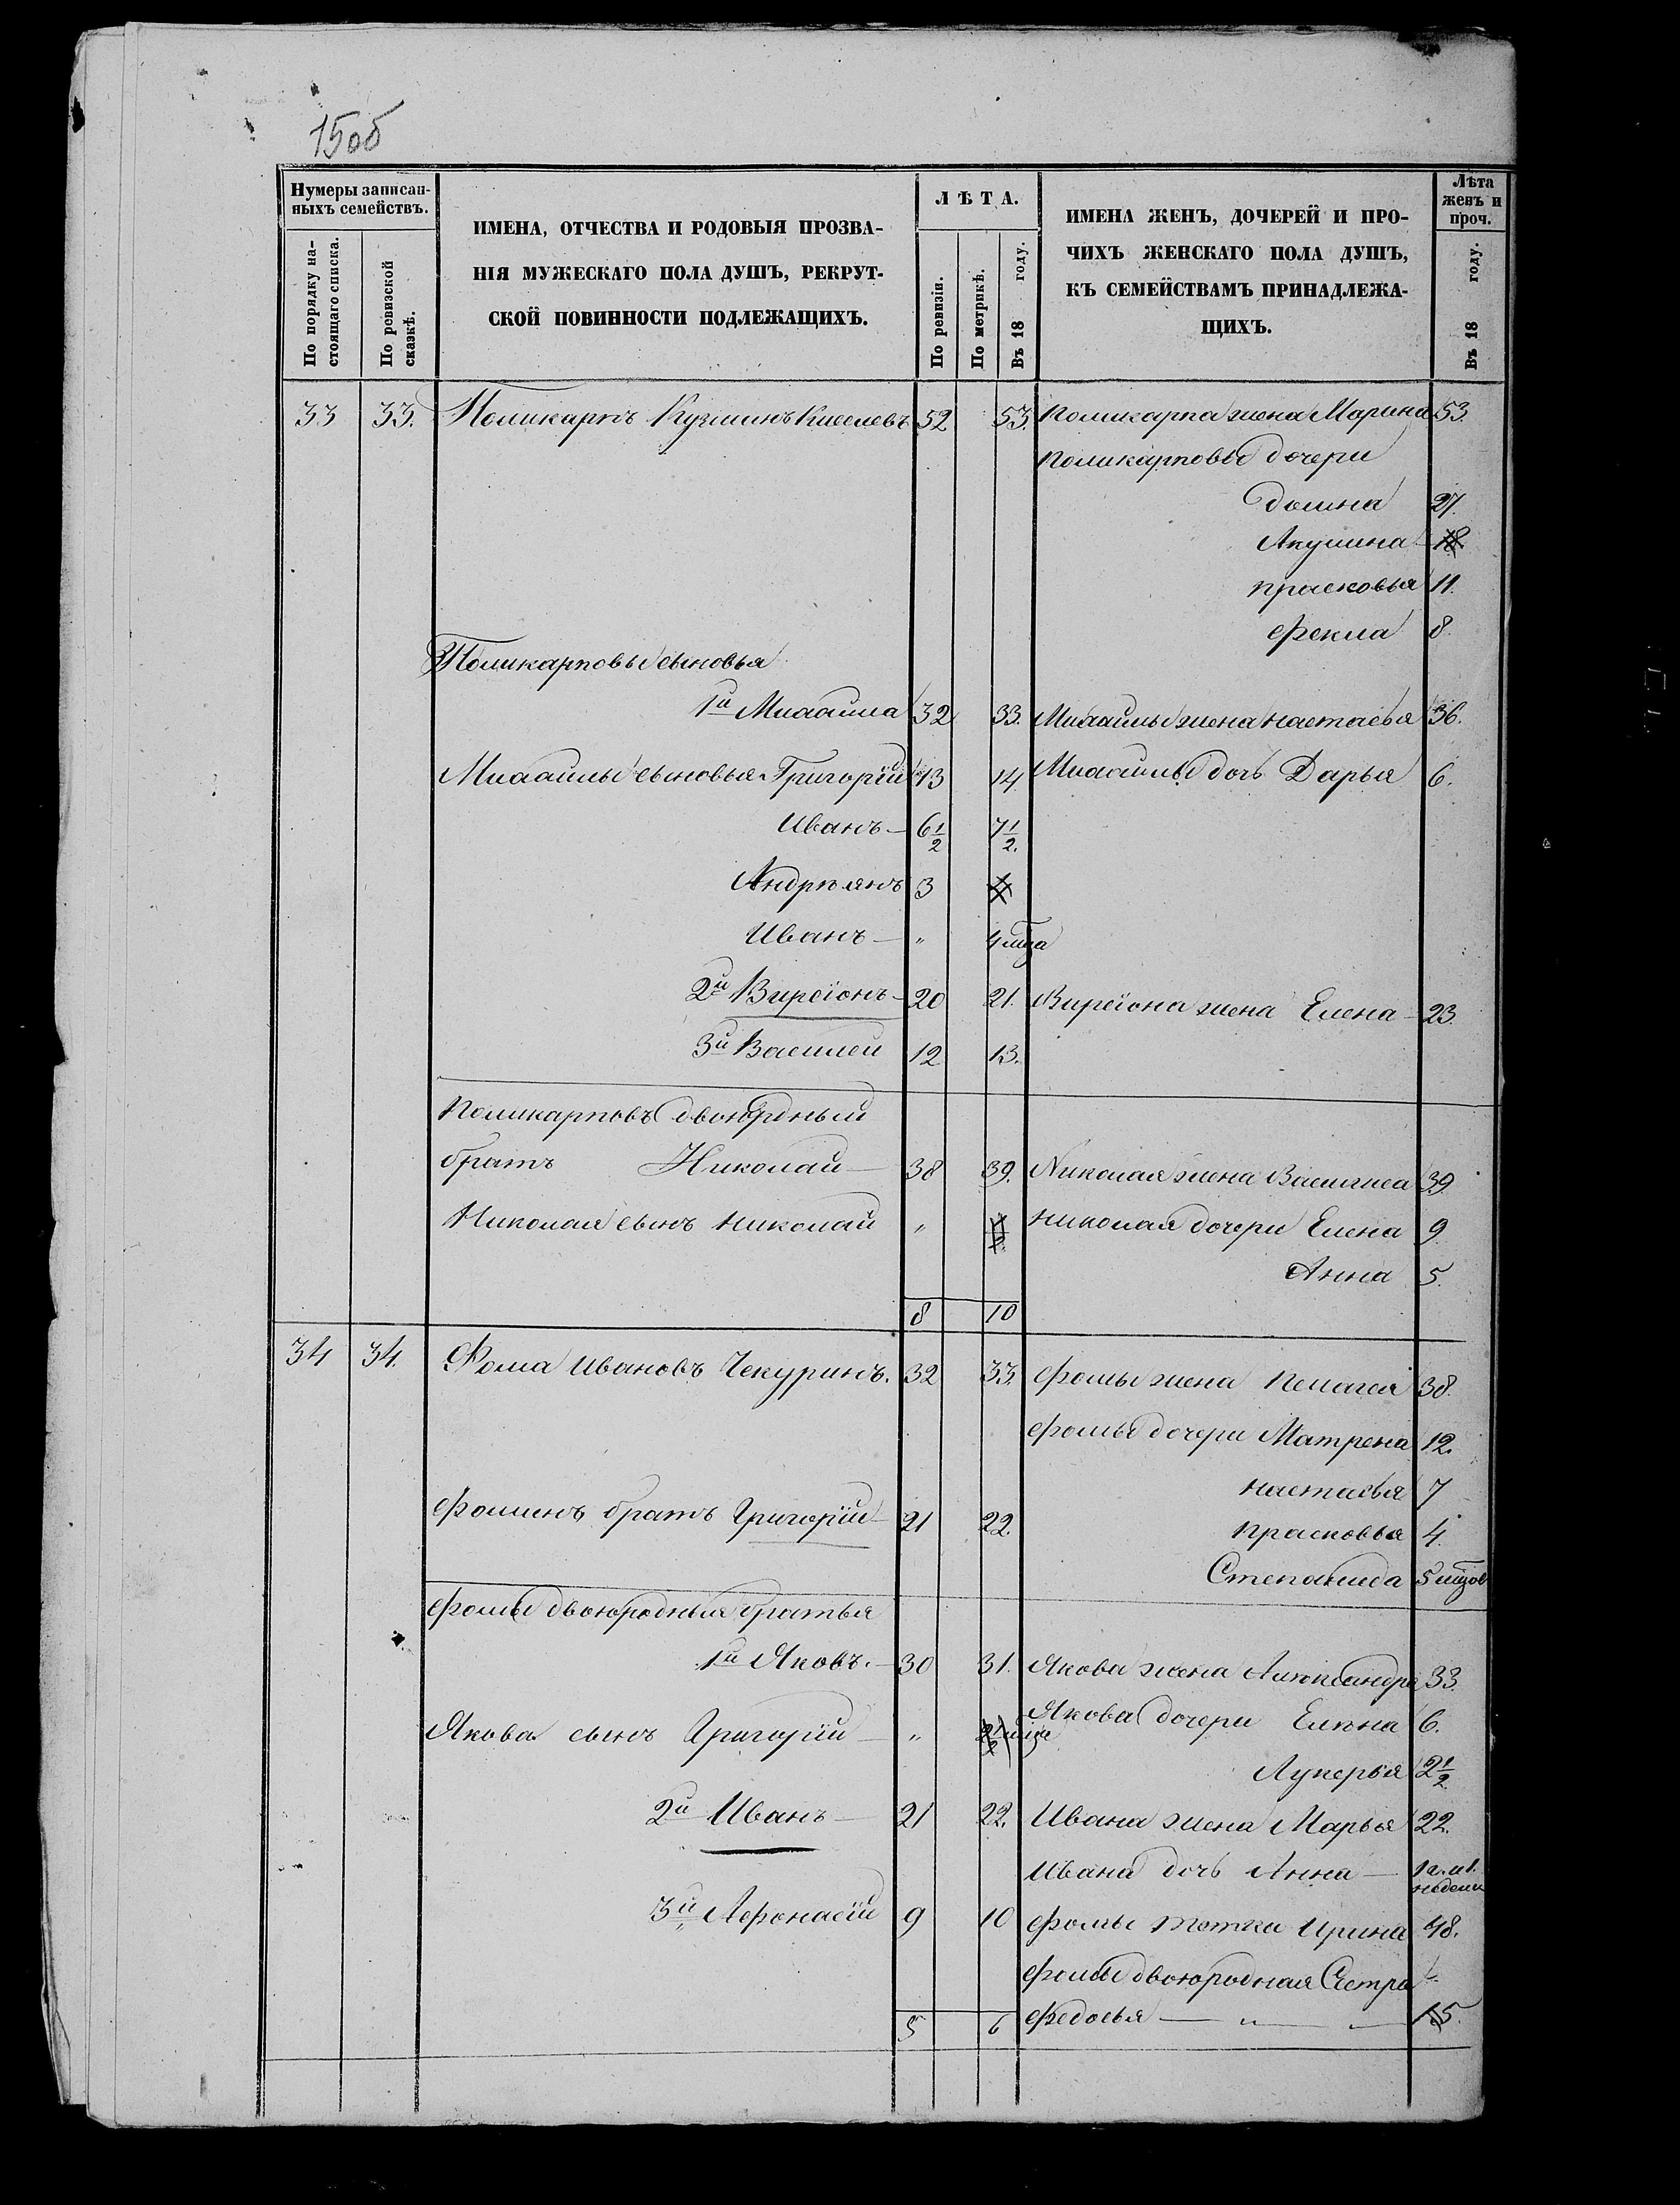 15об
Нумеры записан-
ныхъ семействъ.
По порядку на-
стоящаго списка.
По ревизской
сказкѣ.
ИМЕНА, ОТЧЕСТВА И РОДОВЫЯ ПРОЗВА-
НІЯ МУЖЕСКАГО ПОЛА ДУШЪ, РЕКРУТ-
СКОЙ ПОВИННОСТИ ПОДЛЕЖАЩИХЪ.
ЛѢТА.
По ревизіи.
По метрикѣ.
Въ 18 году.
ИМЕНА ЖЕНЪ, ДОЧЕРЕЙ И ПРО-
ЧИХЪ ЖЕНСКАГО ПОЛА ДУШЪ,
КЪ СЕМЕЙСТВАМЪ ПРИНАДЛЕЖА-
ЩИХЪ.
Лѣта
женъ и
проч.
Въ 18 году.
33 33. Поликарпъ Кузминъ Киселевъ 52 53. Поликарпа жена Марина 53.
Поликарповы дочери
Домна 27.
Акулина 18
Прасковья 11.
Фекла 8.
Поликарповы сыновья
1й Михайла 32 33. Михайлы жена Настасья 36.
Михайлы сыновья Григорій 13 14 Михайлы дочь Дарья 6.
Иванъ 6 1/2 7 1/2.
Андріянъ 3
Иванъ „ 4 м̃ца
2й Вирсіонъ 20 21. Вирсіона жена Елена 23.
3й Василей 12 13.
Поликарповъ двоюрдный
братъ Николай 38 39. Николая жена Василиса 39.
Николая сынъ Николай „ Николая дочери Елена 9
Анна 5.
8 10
34 34. Фома Ивановъ Чекуринъ. 32 33. Фомы жена Пелагея 38.
Фомы дочери Матрена 12.
Настасья 7
Фоминъ братъ Григорій 21 22. Прасковья 4.
Степанида 5 м̃цов
Фомы двоюродныя братья
1й Яковъ. 30 31. Якова жена Александра 33.
Якова сынъ Григорій „ Якова дочери Елена 6.
Лукерья 2 1/2
2й Иванъ 21 22. Ивана жена Марья 22.
Ивана дочь Анна
недели
3й Афонасій 9 10 Фомы тетка Ирина 48.
Фомы двоюродная Сестра
Федосья „ 15.
5 6